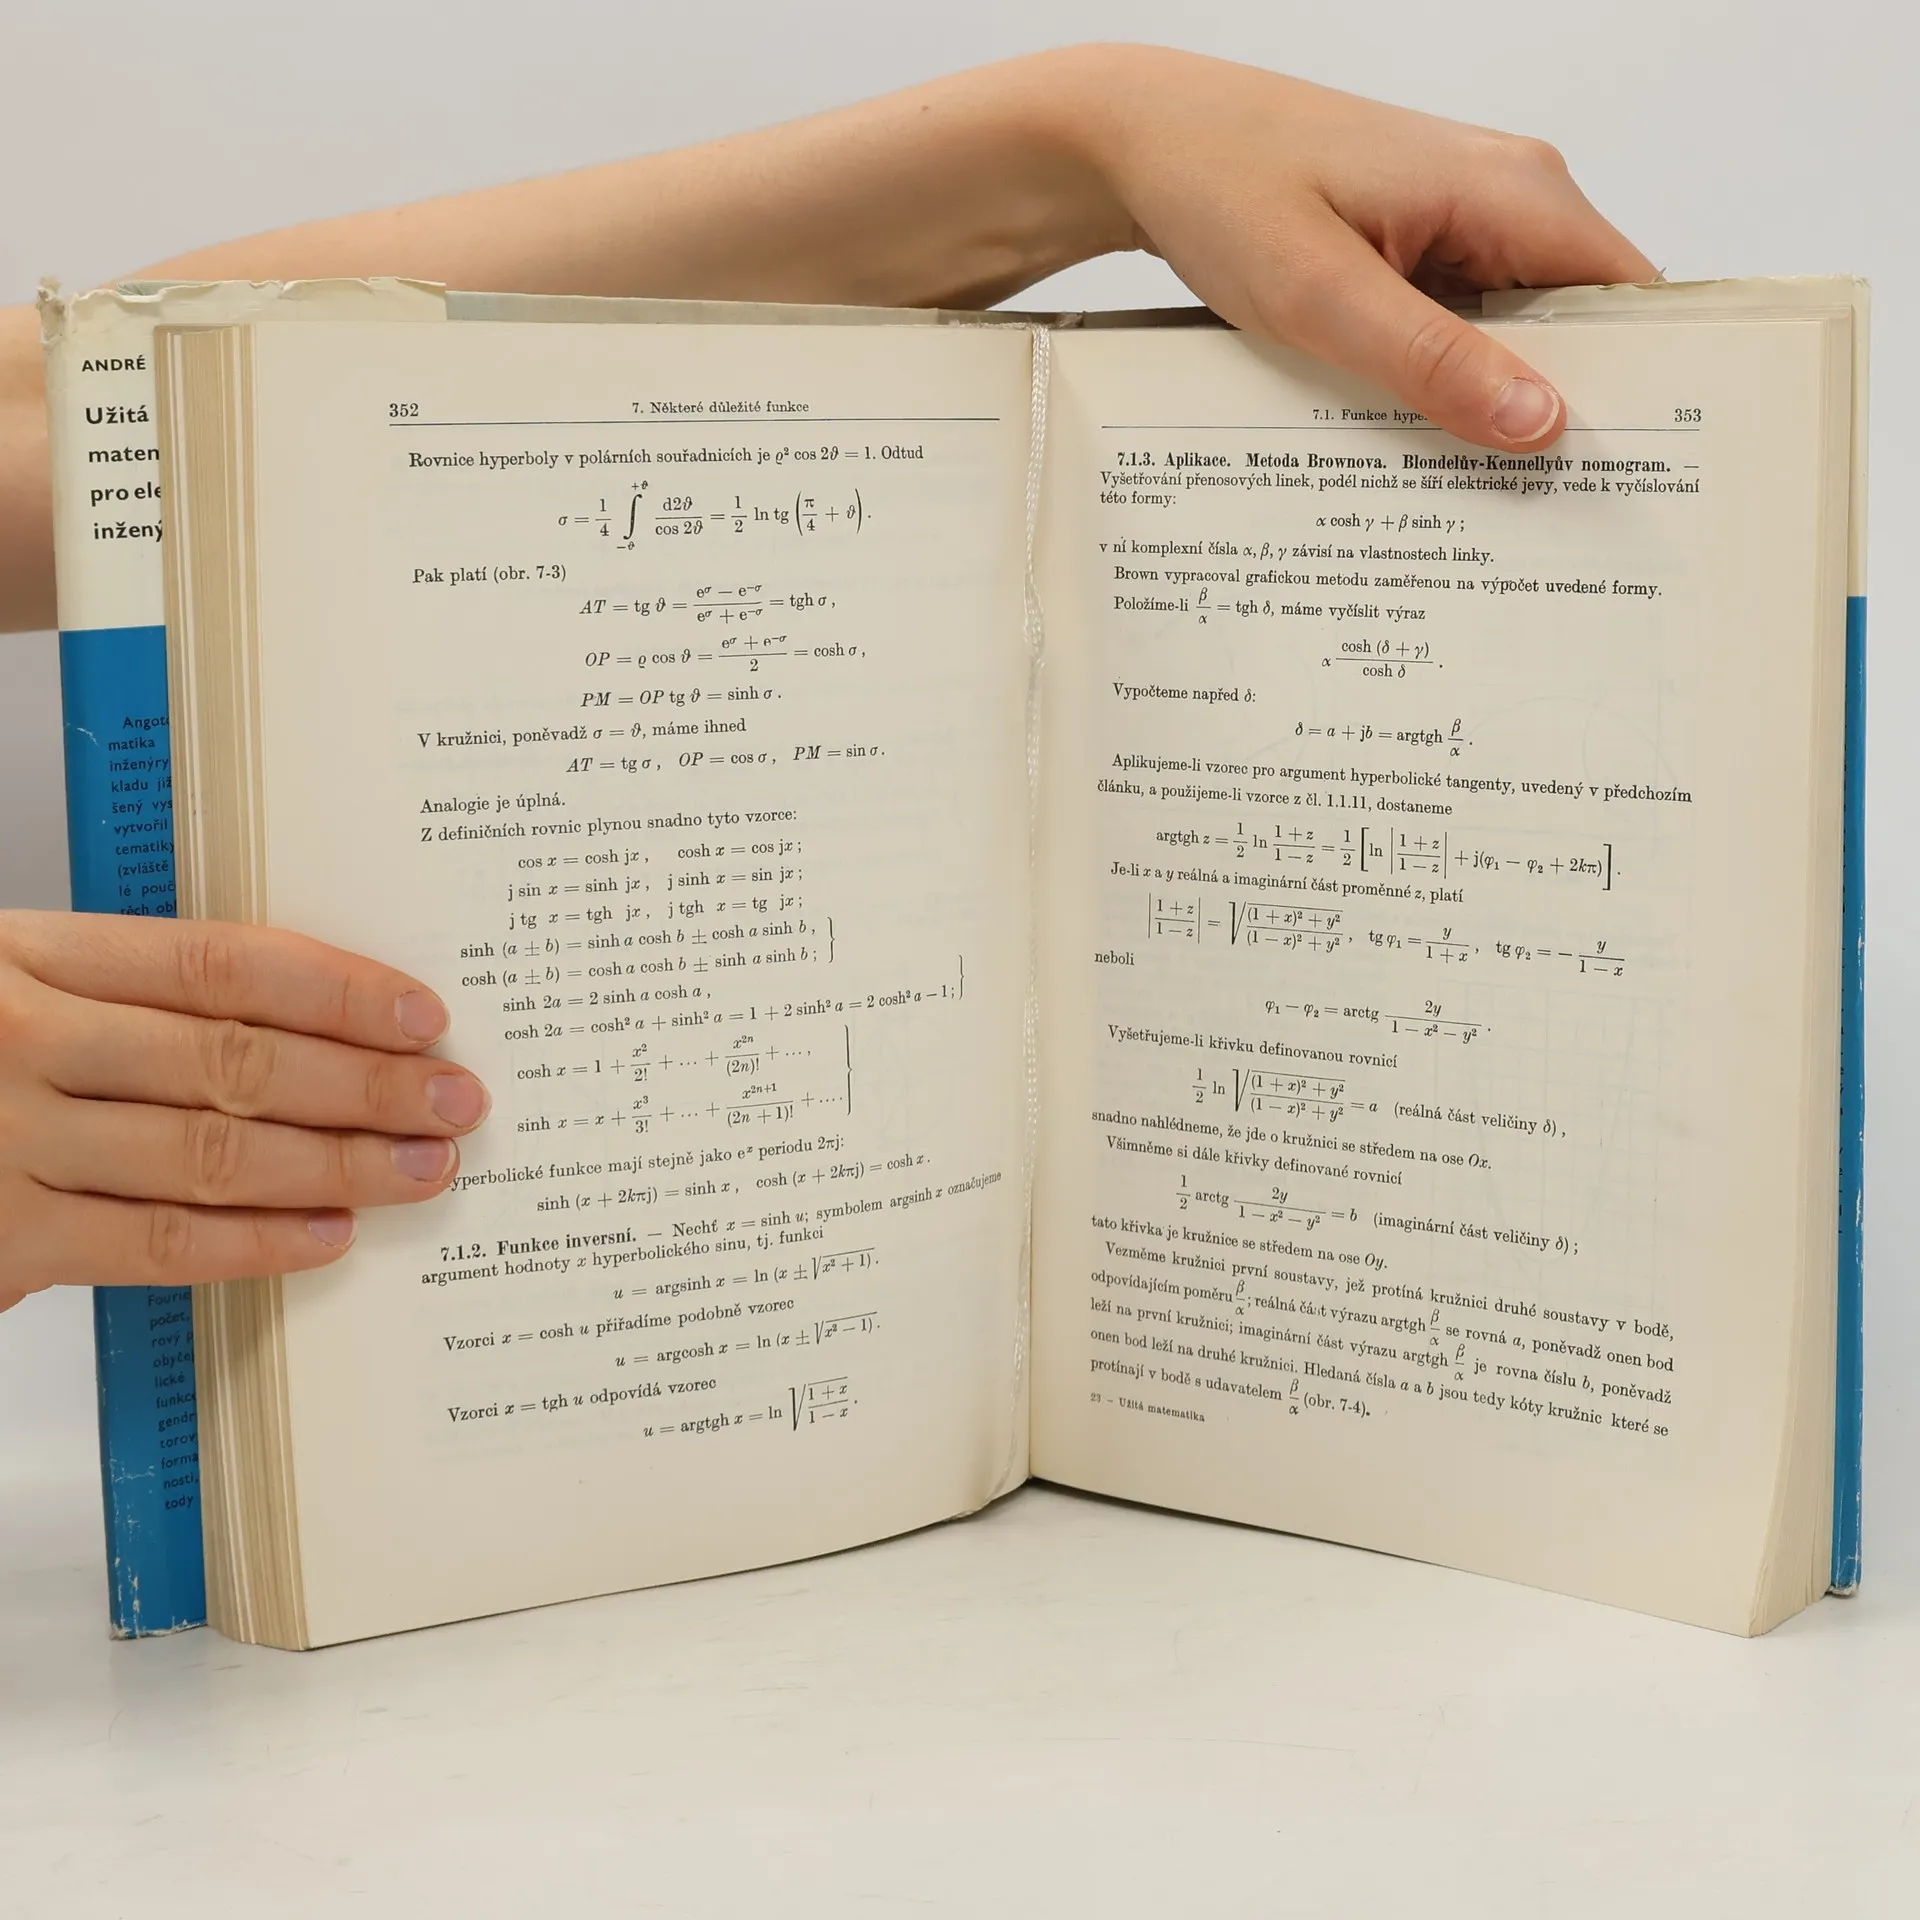 ANDRÉ
Užitá
pro
352 7. Některé důležité funkce
Rovnice hyperboly v polárních souřadnicích je ϱ² cos 2ϑ = 1. Odtud
σ = 1/4 ∫_{−ϑ}^{+ϑ} d2ϑ/cos 2ϑ = 1/2 ln tg (π/4 + ϑ).
Pak platí (obr. 7-3)
AT = tg ϑ = (e^σ − e^−σ)/(e^σ + e^−σ) = tgh σ,
OP = ϱ cos ϑ = (e^σ + e^−σ)/2 = cosh σ,
PM = OP tg ϑ = sinh σ.
V kružnici, poněvadž σ = ϑ, máme ihned
AT = tg σ, OP = cos σ, PM = sin σ.
Analogie je úplná.
Z definičních rovnic plynou snadno tyto vzorce:
cos x = cosh jx, cosh x = cos jx;
j sin x = sinh jx, j sinh x = sin jx;
j tg x = tgh jx, j tgh x = tg jx;
sinh (a ± b) = sinh a cosh b ± cosh a sinh b,
cosh (a ± b) = cosh a cosh b ± sinh a sinh b;
sinh 2a = 2 sinh a cosh a,
cosh 2a = cosh² a + sinh² a = 1 + 2 sinh² a = 2 cosh² a − 1;
cosh x = 1 + x²/2! + ... + x^2n/(2n)! + ...,
sinh x = x + x³/3! + ... + x^2n+1/(2n + 1)! + ....
yperbolické funkce mají stejně jako eˣ periodu 2πj:
sinh (x + 2kπj) = sinh x, cosh (x + 2kπj) = cosh x.
7.1.2. Funkce inversní. — Nechť x = sinh u; symbolem argsinh x označujeme
argument hodnoty x hyperbolického sinu, tj. funkci
u = argsinh x = ln (x ± √(x² + 1)).
Vzorci x = cosh u přiřadíme podobně vzorec
u = argcosh x = ln (x ± √(x² − 1)).
Vzorci x = tgh u odpovídá vzorec
u = argtgh x = ln √((1 + x)/(1 − x)).
7.1. Funkce hype 353
7.1.3. Aplikace. Metoda Brownova. Blondelův-Kennellyův nomogram. —
Vyšetřování přenosových linek, podél nichž se šíří elektrické jevy, vede k vyčíslování
této formy:
α cosh γ + β sinh γ;
v ní komplexní čísla α, β, γ závisí na vlastnostech linky.
Brown vypracoval grafickou metodu zaměřenou na výpočet uvedené formy.
Položíme-li β/α = tgh δ, máme vyčíslit výraz
α cosh (δ + γ)/cosh δ.
Vypočteme napřed δ:
δ = a + jb = argtgh β/α.
Aplikujeme-li vzorec pro argument hyperbolické tangenty, uvedený v předchozím
článku, a použijeme-li vzorce z čl. 1.1.11, dostaneme
argtgh z = 1/2 ln (1 + z)/(1 − z) = 1/2 [ln |(1 + z)/(1 − z)| + j(φ₁ − φ₂ + 2kπ)].
Je-li x a y reálná a imaginární část proměnné z, platí
|(1 + z)/(1 − z)| = √(((1 + x)² + y²)/((1 − x)² + y²)), tg φ₁ = y/(1 + x), tg φ₂ = − y/(1 − x)
neboli
φ₁ − φ₂ = arctg 2y/(1 − x² − y²).
Vyšetřujeme-li křivku definovanou rovnicí
1/2 ln √(((1 + x)² + y²)/((1 − x)² + y²)) = a (reálná část veličiny δ),
snadno nahlédneme, že jde o kružnici se středem na ose Ox.
Všimněme si dále křivky definované rovnicí
1/2 arctg 2y/(1 − x² − y²) = b (imaginární část veličiny δ);
tato křivka je kružnice se středem na ose Oy.
Vezměme kružnici první soustavy, jež protíná kružnici druhé soustavy v bodě,
odpovídajícím poměru β/α; reálná část výrazu argtgh β/α se rovná a, poněvadž onen bod
leží na první kružnici; imaginární část výrazu argtgh β/α je rovna číslu b, poněvadž
onen bod leží na druhé kružnici. Hledaná čísla a a b jsou tedy kóty kružnic které se
protínají v bodě s udavatelem β/α (obr. 7-4).
23 – Užitá matematika